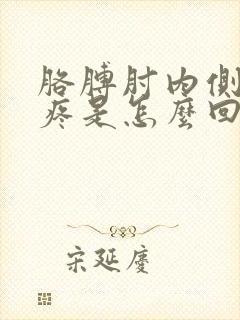 胳膊肘内侧
疼是怎麼回
宋延慶